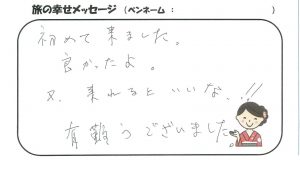 旅の幸せメッセージ (ペンネーム : )
初めて来ました。
良かったよ。
又、来れるといいな、、
有難うございました。